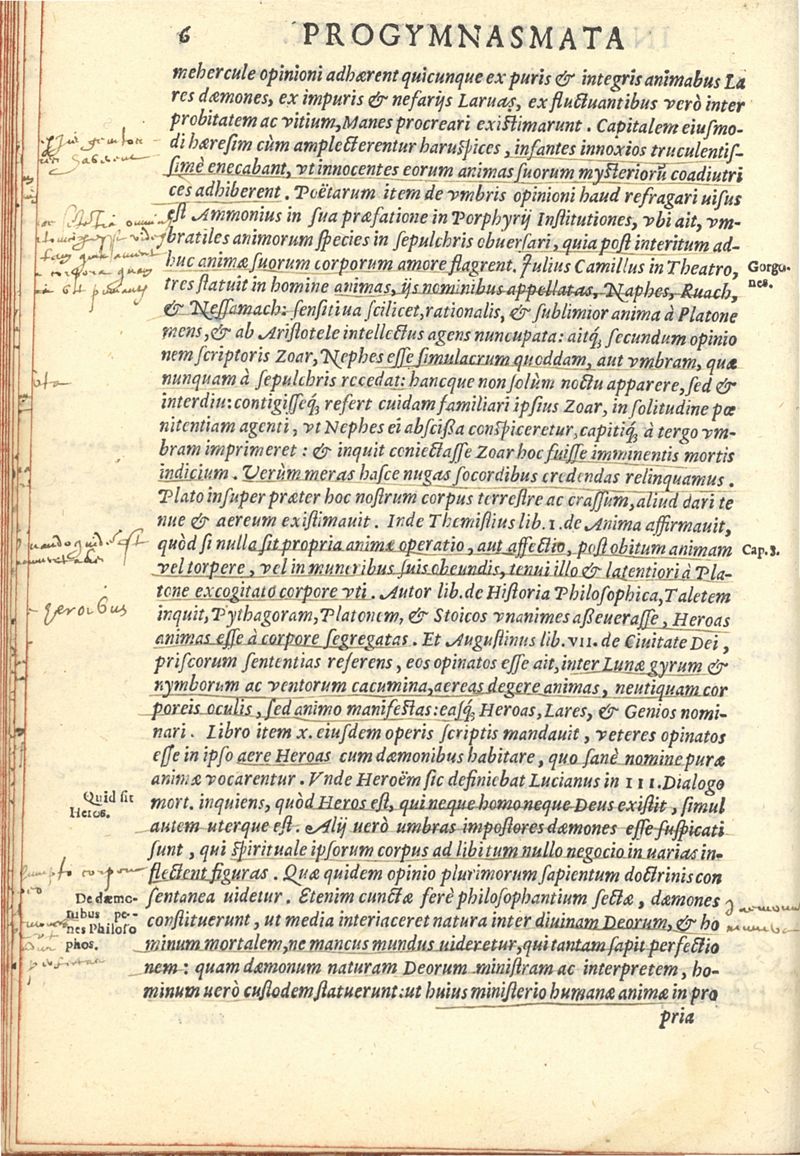 6 PROGYMNASMATA
mehercule opinioni adhærent quicunque ex puris & integris animabus La
res dæmones, ex impuris & nefarijs Laruas, ex fluctuantibus verò inter
probitatem ac vitium, Manes procreari existimarunt. Capitalem eiusmo-
di hæresim cùm amplecterentur haruspices, infantes innoxios truculentis-
simè enecabant, vt innocentes eorum animas suorum mysteriorũ coadiutri
ces adhiberent. Poëtarum item de vmbris opinioni haud refragari uisus
est Ammonius in sua præfatione in Porphyrij Institutiones, vbi ait, vm-
bratiles animorum species in sepulchris obuersari, quia post interitum ad-
huc animæ suorum corporum amore flagrent. Julius Camillus in Theatro,
Gorgo-
nes.
tres statuit in homine animas, ijs nominibus appellatas, Naphes, Ruach,
& Nessamach: sensitiua scilicet, rationalis, & sublimior anima à Platone
mens, & ab Aristotele intellectus agens nuncupata: aitq́; secundum opinio
nem scriptoris Zoar, Nephes esse simulacrum quoddam, aut vmbram, quæ
nunquam à sepulchris recedat: hancque non solùm noctu apparere, sed &
interdiu: contigisseq́; refert cuidam familiari ipsius Zoar, in solitudine pœ
nitentiam agenti, vt Nephes ei abscißa conspiceretur, capitiq́; à tergo vm-
bram imprimeret: & inquit coniectasse Zoar hoc fuisse imminentis mortis
indicium. Verùm meras hasce nugas socordibus credendas relinquamus.
Plato insuper præter hoc nostrum corpus terrestre ac crassum, aliud dari te
nue & aereum existimauit. Inde Themistius lib. 1. de Anima affirmauit,
quòd si nulla sit propria animæ operatio, aut affectio, post obitum animam
Cap. 3.
vel torpere, vel in muneribus suis obeundis, tenui illo & latentiori à Pla-
tone excogitato corpore vti. Autor lib. de Historia Philosophica, Taletem
inquit, Pythagoram, Platonem, & Stoicos vnanimes aßeuerasse, Heroas
animas esse à corpore segregatas. Et Augustinus lib. VII. de Ciuitate Dei,
priscorum sententias referens, eos opinatos esse ait, inter Lunæ gyrum &
nymborum ac ventorum cacumina, aereas degere animas, neutiquam cor
poreis oculis, sed animo manifestas: easq́; Heroas, Lares, & Genios nomi-
nari. Libro item X. eiusdem operis scriptis mandauit, veteres opinatos
esse in ipso aere Heroas cum dæmonibus habitare, quo sanè nomine puræ
animæ vocarentur. Vnde Heroëm sic definiebat Lucianus in III. Dialogo
Quid sit
Heros.
mort. inquiens, quòd Heros est, qui neque homo neque Deus existit, simul
autem uterque est. Alij uerò umbras impostores dæmones esse suspicati
sunt, qui spirituale ipsorum corpus ad libitum nullo negocio in uarias in-
flectent figuras. Quæ quidem opinio plurimorum sapientum doctrinis con
sentanea uidetur. Etenim cunctæ ferè philosophantium sectæ, dæmones
De dæmo-
nibus pe-
nes Philoso
phos.
constituerunt, ut media interiaceret natura inter diuinam Deorum, & ho
minum mortalem, ne mancus mundus uideretur, qui tantam sapit perfectio
nem: quam dæmonum naturam Deorum ministram ac interpretem, ho-
minum uerò custodem statuerunt: ut huius ministerio humanæ animæ in pro
pria